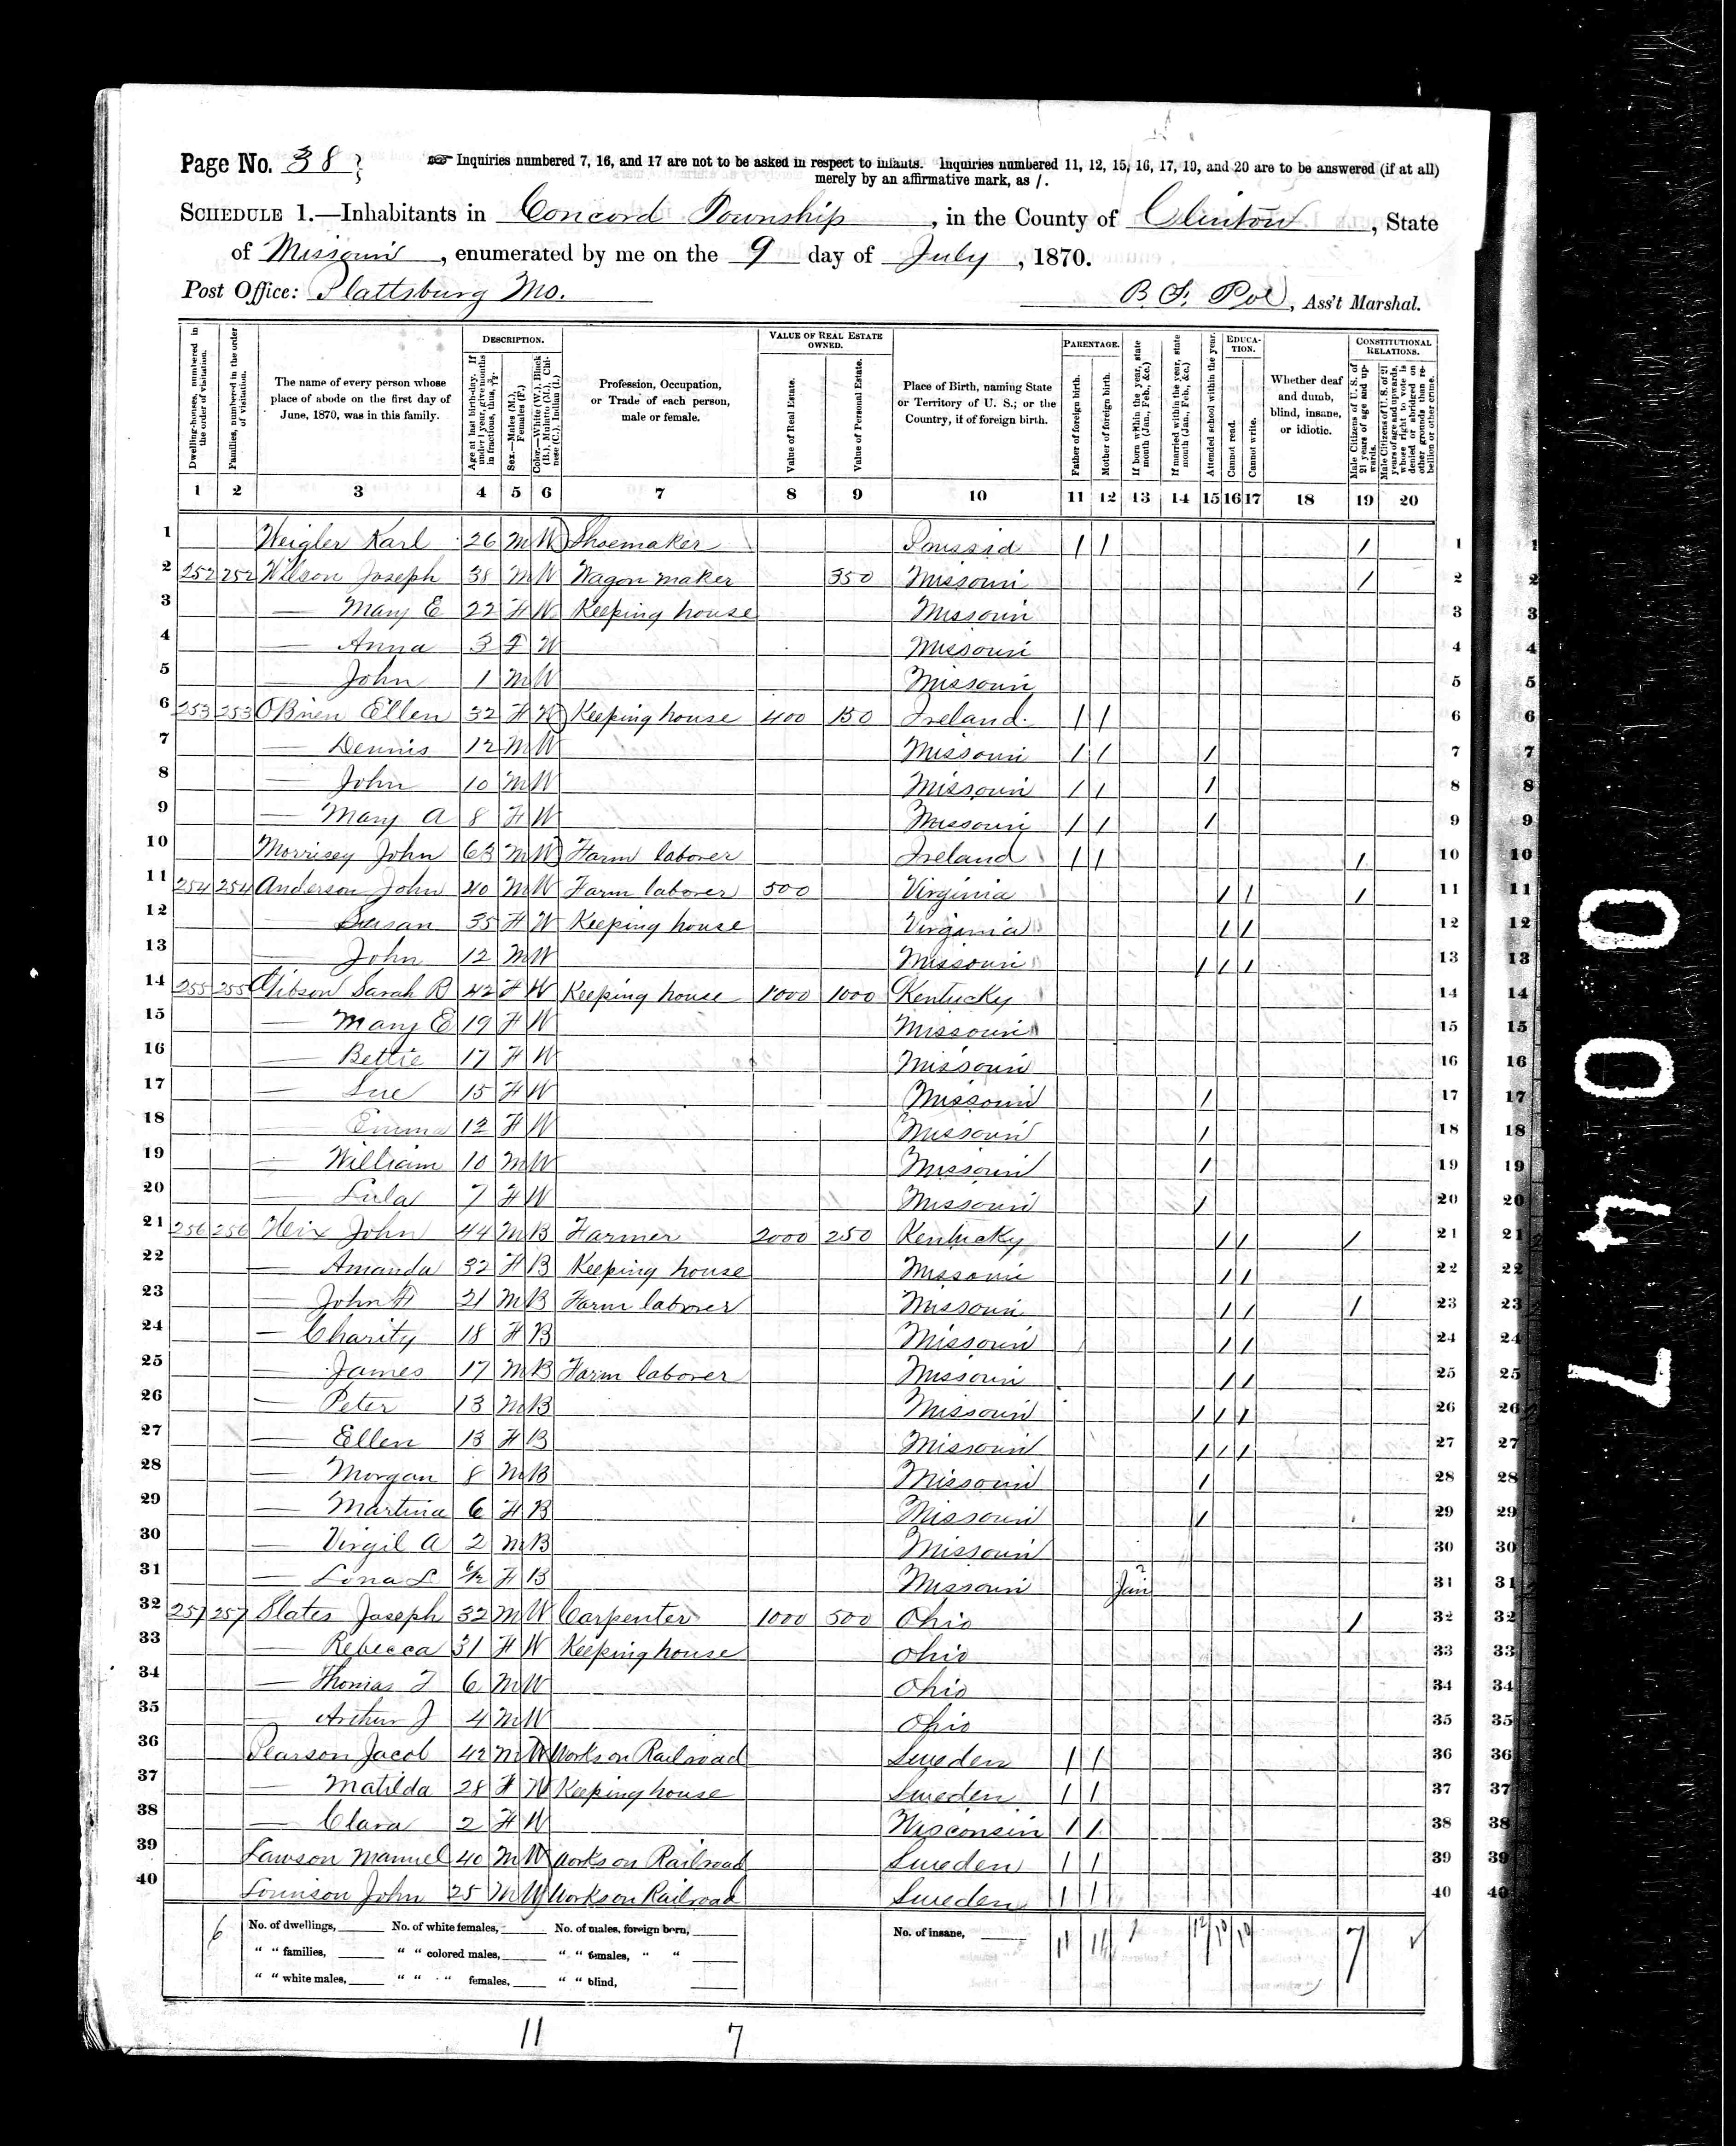 Page No. 38
Inquiries numbered 7, 16, and 17 are not to be asked in respect to infants. Inquiries numbered 11, 12, 15, 16, 17, 19, and 20 are to be answered (if at all)
merely by an affirmative mark, as /.
SCHEDULE 1.—Inhabitants in Concord Township, in the County of Clinton, State
of Missouri, enumerated by me on the 9 day of July, 1870.
Post Office: Plattsburg Mo.
B. F. Poe, Ass't Marshal.
Dwelling-houses, numbered in the order of visitation.
Families, numbered in the order of visitation.
The name of every person whose place of abode on the first day of June, 1870, was in this family.
DESCRIPTION.
Age at last birth-day. If under 1 year, give months in fractions, thus, 3/12.
Sex.—Males (M.), Females (F.)
Color.—White (W.), Black (B.), Mulatto (M.), Chinese (C.), Indian (I.)
Profession, Occupation, or Trade of each person, male or female.
VALUE OF REAL ESTATE OWNED.
Value of Real Estate.
Value of Personal Estate.
Place of Birth, naming State or Territory of U. S.; or the Country, if of foreign birth.
PARENTAGE.
Father of foreign birth.
Mother of foreign birth.
If born within the year, state month (Jan., Feb., &c.)
If married within the year, state month (Jan., Feb., &c.)
Attended school within the year.
EDUCATION.
Cannot read.
Cannot write.
Whether deaf and dumb, blind, insane, or idiotic.
CONSTITUTIONAL RELATIONS.
Male Citizens of U. S. of 21 years of age and upwards.
Male Citizens of U. S. of 21 years of age and upwards, whose right to vote is denied or abridged on other grounds than rebellion or other crime.
1 2 3 4 5 6 7 8 9 10 11 12 13 14 15 16 17 18 19 20
1 Weigler Karl 26 M W Shoemaker / / / 1 1
2 252 252 Wilson Joseph 38 M W Wagon maker 350 Missouri / 2 2
3 — Mary E 22 F W Keeping house Missouri 3 3
4 — Anna 3 F W Missouri 4 4
5 — John 1 M W Missouri 5 5
6 253 253 OBrien Ellen 32 F W Keeping house 400 150 Ireland / / 6 6
7 — Dennis 12 M W Missouri / / / 7 7
8 — John 10 M W Missouri / / / 8 8
9 — Mary A 8 F W Missouri / / / 9 9
10 Morrisey John 63 M W Farm laborer Ireland / / / 10 10
11 254 254 Anderson John 40 M W Farm laborer 500 Virginia / / / 11 11
12 — Susan 35 F W Keeping house Virginia / / 12 12
13 — John 12 M W Missouri / / / 13 13
14 255 255 Gibson Sarah B 42 F W Keeping house 1000 1000 Kentucky 14 14
15 — Mary E 19 F W Missouri 15 15
16 — Bettie 17 F W Missouri 16 16
17 — Sue 15 F W Missouri / 17 17
18 — Emma 12 F W Missouri / 18 18
19 — William 10 M W Missouri / 19 19
20 — Lula 7 F W Missouri / 20 20
21 256 256 Hix John 44 M B Farmer 2000 250 Kentucky / / / 21 21
22 — Amanda 32 F B Keeping house Missouri / / 22 22
23 — John H 21 M B Farm laborer Missouri / / / 23 23
24 — Charity 18 F B Missouri / / 24 24
25 — James 17 M B Farm laborer Missouri / / 25 25
26 — Peter 13 M B Missouri / / / 26 26
27 — Ellen 13 F B Missouri / / / 27 27
28 — Morgan 8 M B Missouri / 28 28
29 — Martina 6 F B Missouri / 29 29
30 — Virgil A 2 M B Missouri 30 30
31 — Lona L 6/12 F B Missouri Jan 31 31
32 257 257 Slates Joseph 32 M W Carpenter 1000 500 Ohio / 32 32
33 — Rebecca 31 F W Keeping house Ohio 33 33
34 — Thomas 6 M W Ohio 34 34
35 — Arthur J 4 M W Ohio 35 35
36 Pearson Jacob 42 M W Works on Railroad Sweden / / 36 36
37 — Matilda 28 F W Keeping house Sweden / / 37 37
38 — Clara 2 F W Wisconsin / / 38 38
39 Lawson Manuel 40 M W Works on Railroad Sweden / / 39 39
40 John 25 M W Works on Railroad Sweden / / 40 40
6 No. of dwellings, No. of white females, No. of males, foreign born, No. of insane, 11 11 1 12 10 10 7
" " families, " " colored males, " " females, " "
" " white males, " " " females, " " blind,
11 7
0047